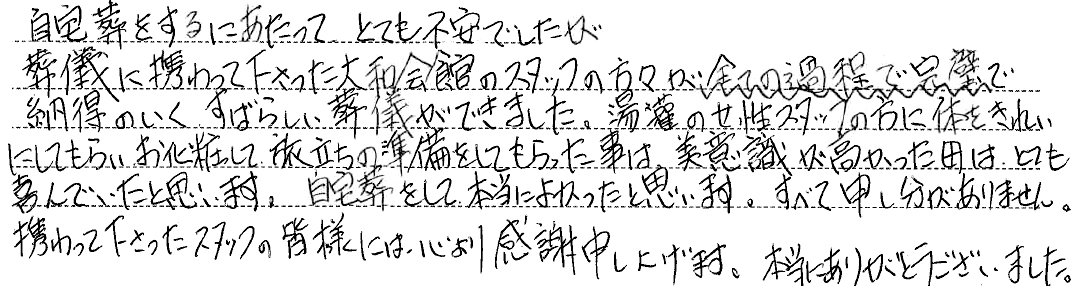 自宅葬をするにあたって、とても不安でしたが
葬儀に携わって下さった大和会館のスタッフの方々が全ての過程で完璧で
納得のいくすばらしい葬儀ができました。湯灌の女性スタッフの方に体をきれい
にしてもらい、お化粧して旅立ちの準備をしてもらった事は、美意識が高かった母は、とても
喜んでいたと思います。自宅葬をして本当によかったと思います。すべて申し分がありません。
携わって下さったスタッフの皆様には、心より感謝申し上げます。本当にありがとうございました。